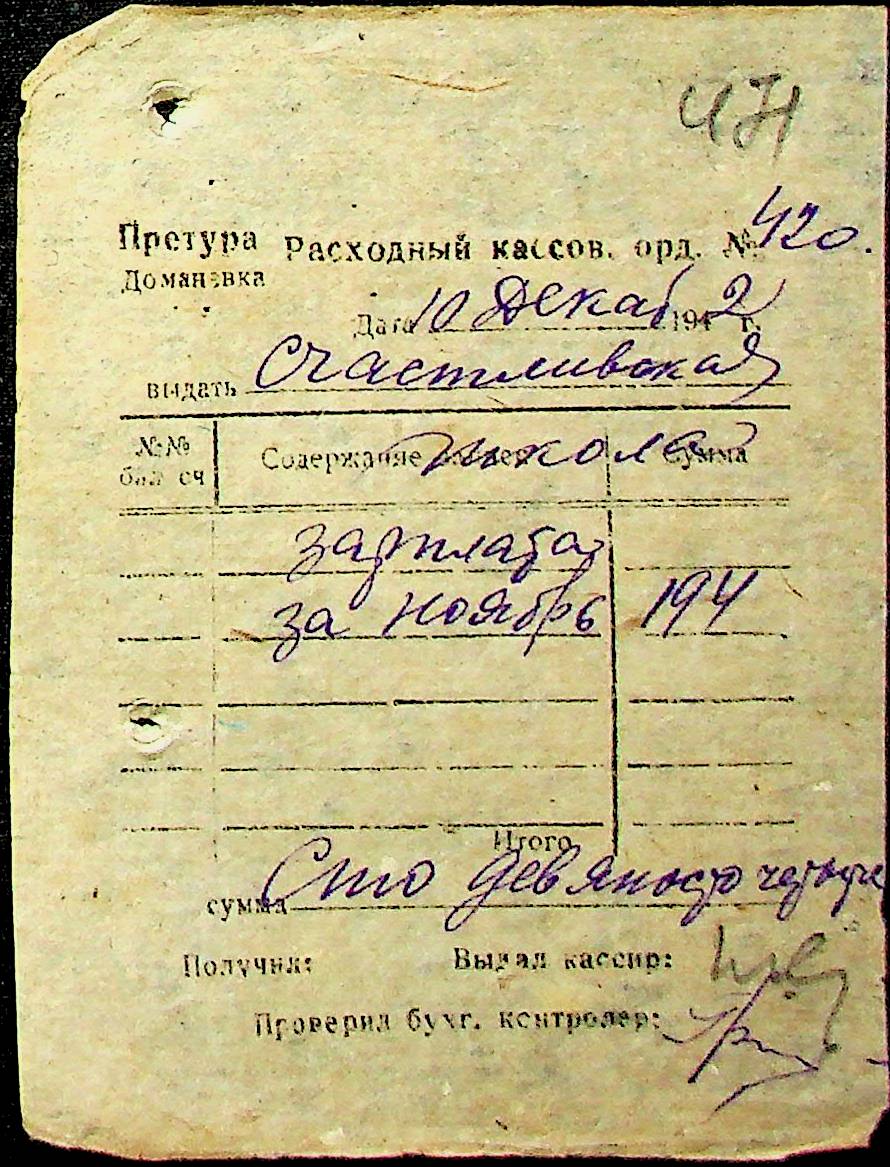 Претура Расходный кассов. орд. № 420.
Домановка
Дата 10 Декаб 1942 г.
выдать Счастливская
№№ бал. сч Содержание Сумма
зарплата
за ноябрь 194
Итого
сумма Сто девяносто четыре
Получил: Выдал кассир:
Проверил бухг. контролер: